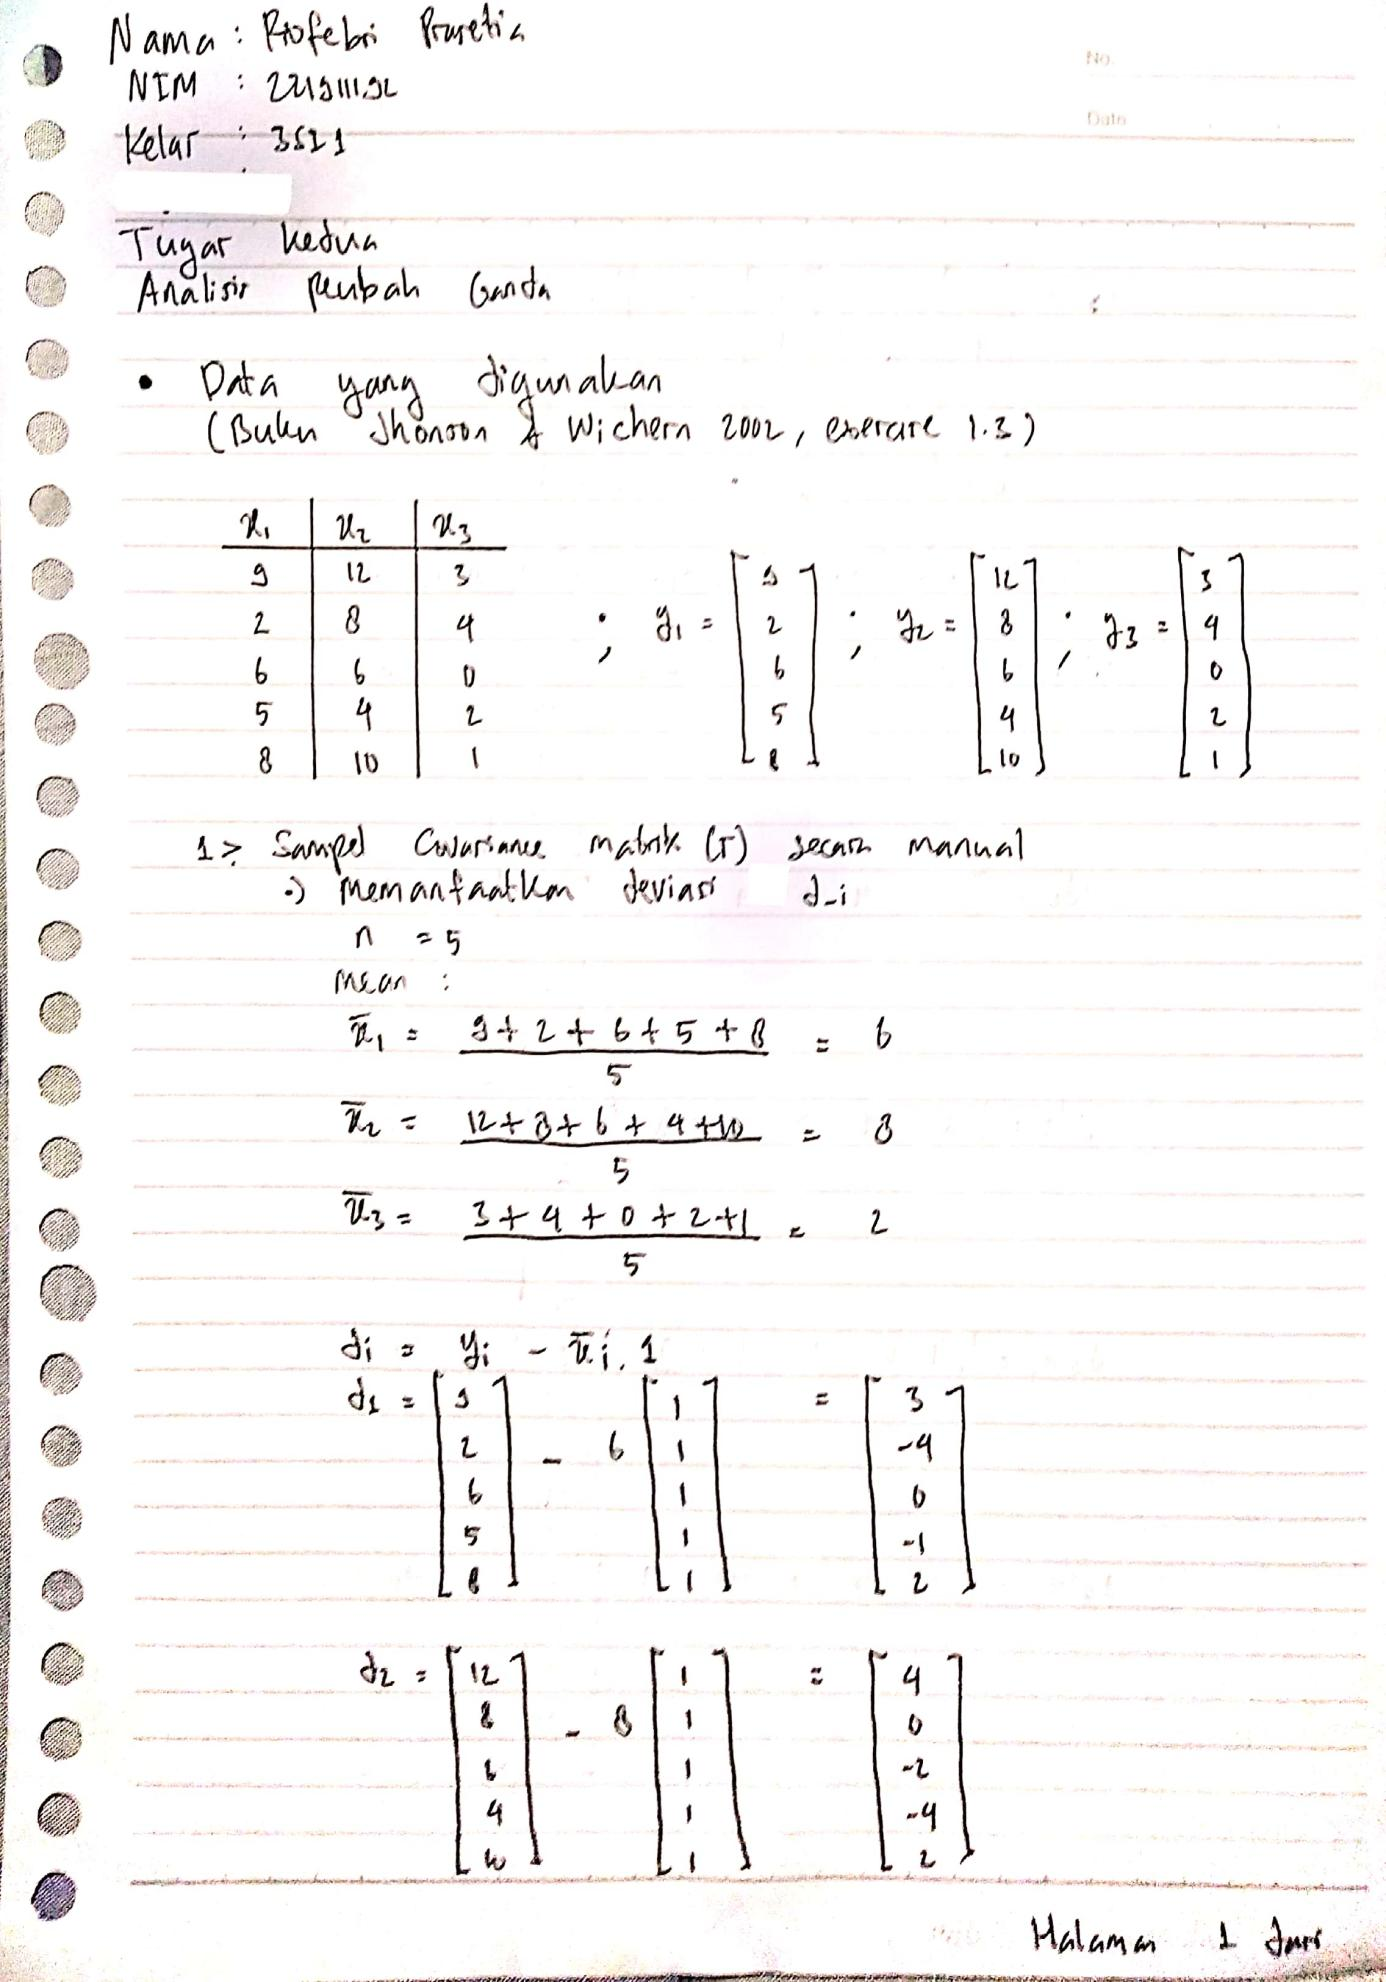 No.
Date
Nama : Profebri Prasetia
NIM : 221911192
Kelas : 3SI1
Tugas kedua
Analisis Peubah Ganda
• Data yang digunakan
(Buku Jhonson & Wichern 2002, exercise 1.3)
x₁ | x₂ | x₃
9 | 12 | 3
2 | 8 | 4
6 | 6 | 0
5 | 4 | 2
8 | 10 | 1
; y₁ = [9 2 6 5 8] ; y₂ = [12 8 6 4 10] ; y₃ = [3 4 0 2 1]
1> Sampel Covariance matrik (S) secara manual
•) Memanfaatkan deviasi d_i
n = 5
Mean :
x̄₁ = 9+2+6+5+8 / 5 = 6
x̄₂ = 12+8+6+4+10 / 5 = 8
x̄₃ = 3+4+0+2+1 / 5 = 2
di = yi - x̄i.1
d1 = [9 2 6 5 8] - 6 [1 1 1 1 1] = [3 -4 0 -1 2]
d2 = [12 8 6 4 10] - 8 [1 1 1 1 1] = [4 0 -2 -4 2]
Halaman 1 dari